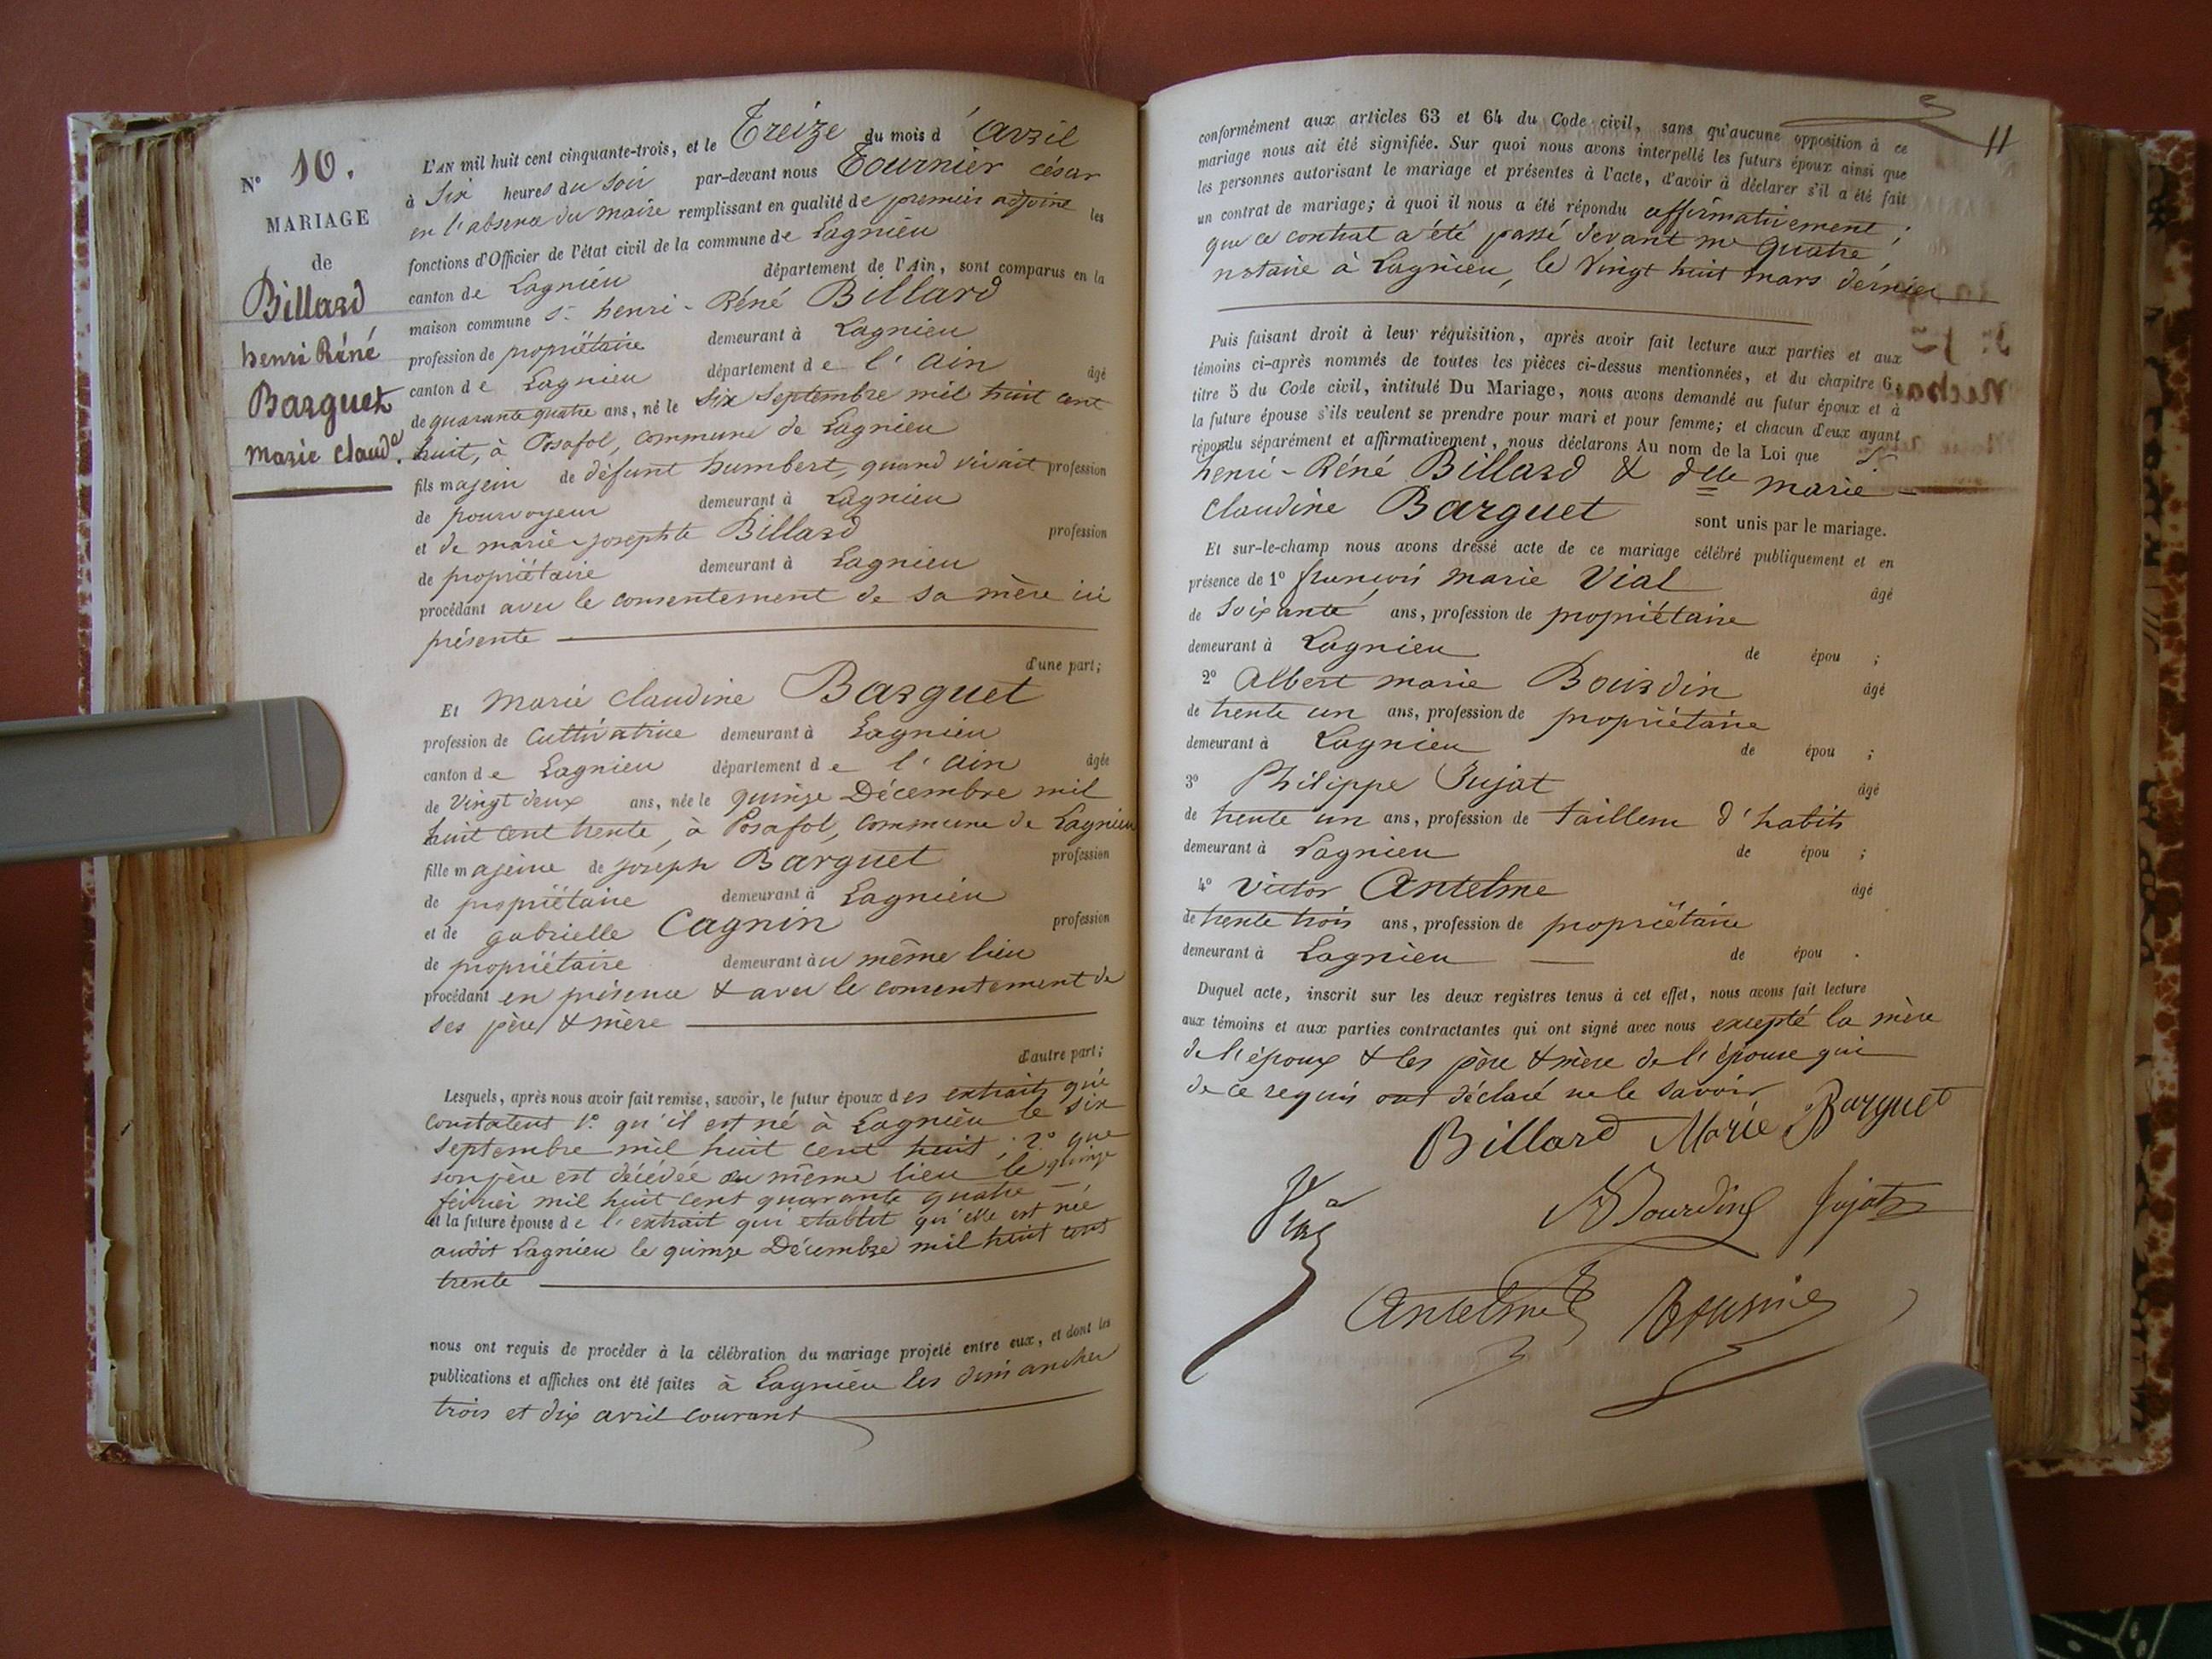 N° 10.
MARIAGE
de
Billard
henri Réné
Barguet
Marie Claude.
L'AN mil huit cent cinquante-trois, et le Treize du mois d'avril
à Six heures du soir par-devant nous Tournier césar
en l'absence du maire remplissant en qualité de premier adjoint les
fonctions d'Officier de l'état civil de la commune de Lagnieu
canton de Lagnieu département de l'Ain, sont comparus en la
maison commune Sr henri-Réné Billard
profession de propriétaire demeurant à Lagnieu
canton de Lagnieu département de l'Ain âgé
de quarante quatre ans, né le six Septembre mil huit cent
huit, à Posafol, commune de Lagnieu
fils majeur de défunt humbert, quand vivait profession
de pourvoyeur demeurant à Lagnieu
et de marie-josephte Billard profession
de propriétaire demeurant à Lagnieu
procédant avec le consentement de sa mère ici
présente
d'une part;
Et Marie Claudine Barguet
profession de Cultivatrice demeurant à Lagnieu
canton de Lagnieu département de l'Ain âgée
de Vingt deux ans, née le quinze Décembre mil
huit cent trente, à Posafol, commune de Lagnieu
fille majeure de joseph Barguet profession
de propriétaire demeurant à Lagnieu
et de gabrielle Cagnin profession
de propriétaire demeurant au même lieu
procédant en présence & avec le consentement de
ses père & mère
d'autre part;
Lesquels, après nous avoir fait remise, savoir, le futur époux des extraits qui
constatent 1° qu'il est né à Lagnieu le six
Septembre mil huit cent huit; 2° que
son père est décédée au même lieu le quinze
février mil huit cent quarante quatre
et la future épouse de l'extrait qui établit qu'elle est née
audit Lagnieu le quinze Décembre mil huit cent
trente
nous ont requis de procéder à la célébration du mariage projeté entre eux, et dont les
publications et affiches ont été faites à Lagnieu les dimanches
trois et dix avril courant
11
conformément aux articles 63 et 64 du Code civil, sans qu'aucune opposition à ce
mariage nous ait été signifiée. Sur quoi nous avons interpellé les futurs époux ainsi que
les personnes autorisant le mariage et présentes à l'acte, d'avoir à déclarer s'il a été fait
un contrat de mariage; à quoi il nous a été répondu affirmativement;
que ce contrat a été passé devant me Quatre,
notaire à Lagnieu, le vingt huit mars dernier
Puis faisant droit à leur réquisition, après avoir fait lecture aux parties et aux
témoins ci-après nommés de toutes les pièces ci-dessus mentionnées, et du chapitre 6,
titre 5 du Code civil, intitulé Du Mariage, nous avons demandé au futur époux et à
la future épouse s'ils veulent se prendre pour mari et pour femme; et chacun d'eux ayant
répondu séparément et affirmativement, nous déclarons Au nom de la Loi que Sr
henri-Réné Billard & dlle marie-
claudine Barguet sont unis par le mariage.
Et sur-le-champ nous avons dressé acte de ce mariage célébré publiquement et en
présence de 1° françois marie Vial âgé
de soixante ans, profession de propriétaire
demeurant à Lagnieu de épou ;
2° Albert marie Bourdin âgé
de trente un ans, profession de propriétaire
demeurant à Lagnieu de épou ;
3° Philippe Jujat âgé
de trente un ans, profession de tailleur d'habits
demeurant à Lagnieu de épou ;
4° Victor Antelme âgé
de trente trois ans, profession de propriétaire
demeurant à Lagnieu de épou .
Duquel acte, inscrit sur les deux registres tenus à cet effet, nous avons fait lecture
aux témoins et aux parties contractantes qui ont signé avec nous excepté la mère
de l'époux & les père & mère de l'épouse qui
de ce requis ont déclaré ne le savoir
Billard Marie Barguet
Vial
Bourdin Jujat
Antelme Tournier